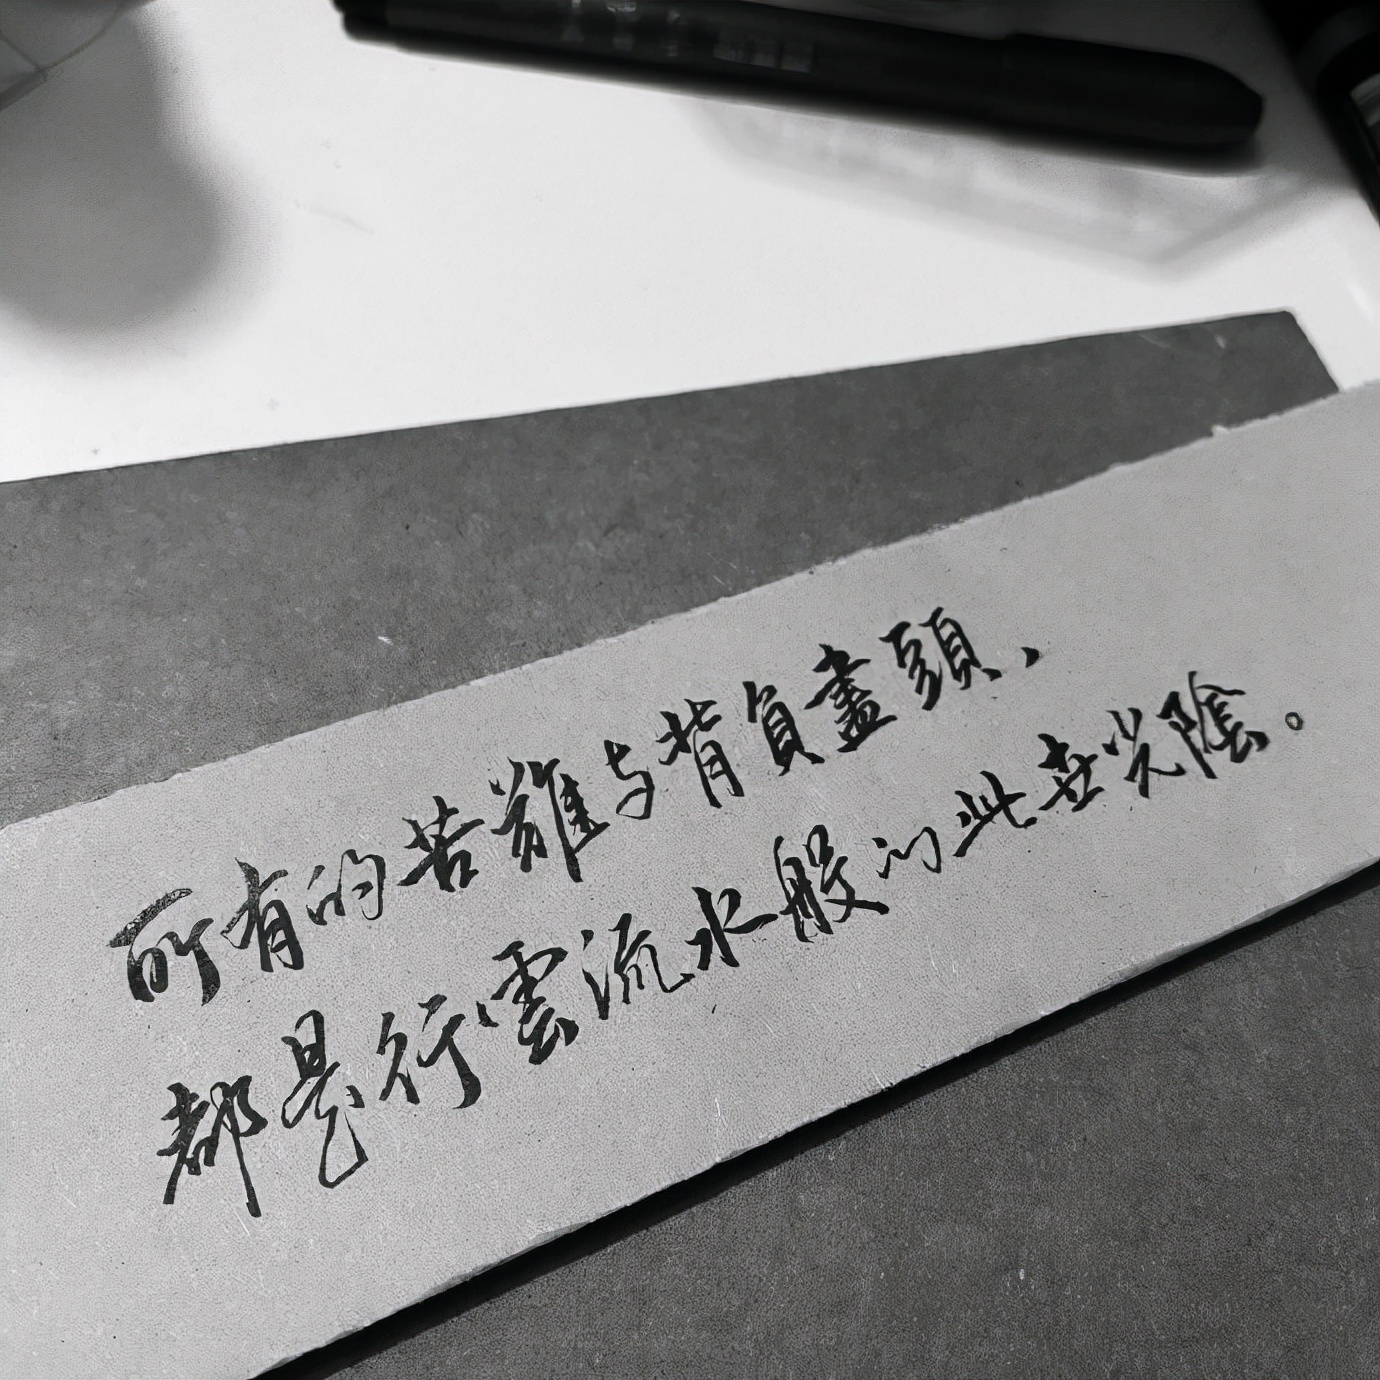 所有的苦難与背負盡頭、
都是行雲流水般的此世光陰。